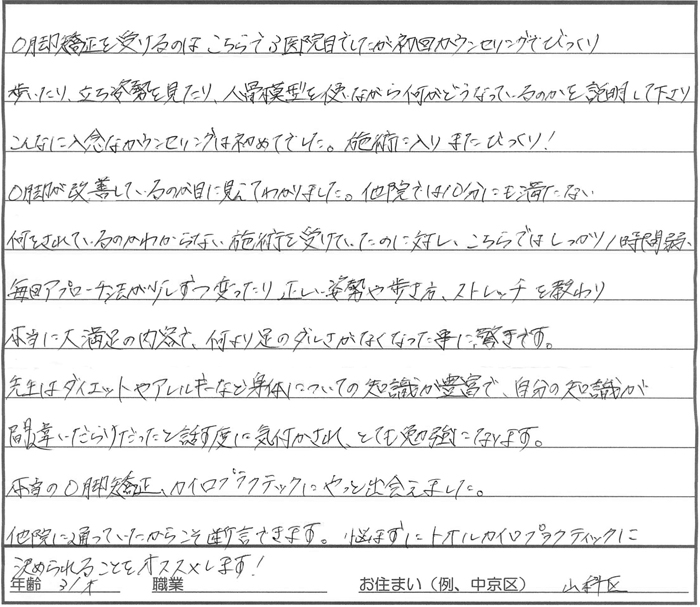 O脚矯正を受けるのはこちらで3医院目でしたが初回カウンセリングでびっくり
歩いたり、立ち姿勢を見たり、人骨模型を使いながら何がどうなっているのかを説明して下さり
こんなに入念なカウンセリングは初めてでした。施術に入りまたびっくり!
O脚が改善しているのが目に見えてわかりました。他院では10分にも満たない
何をされているのかわからない施術を受けていたのに対し、こちらではしっかり1時間弱、
毎回アプローチ法が少しずつ変ったり正しい姿勢や歩き方、ストレッチを教わり
本当に大満足の内容で、何より足のダルさがなくなった事に驚きです。
先生はダイエットやアレルギーなど身体についての知識が豊富で、自分の知識が
間違いだらけだったと話す度に気付かされ、とても勉強になります。
本当のO脚矯正、カイロプラクティックにやっと出会えました。
他院に通っていたからこそ断言できます。悩まずにトオルカイロプラクティックに
決められることをオススメします!
年齢 31才 職業 お住まい(例、中京区) 山科区